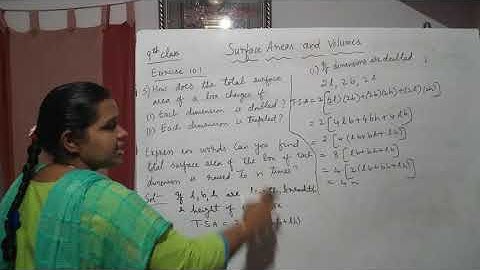 9th class
Surface Areas and Volumes
Exercise 10.1
5) How does the total surface
area of a box change if
(i) Each dimension is doubled?
(ii) Each dimension is tripled?
Express in words. Can you find
total surface area of the box if each
dimension is raised to n times?
Sol:- If l, b, h are length, breadth
& height of
T.S.A = 2
(i) If dimensions are doubled
2l, 2b, 2h
T.S.A = 2[(2l)(2b)+(2b)(2h)+(2l)(2h)]
= 2[4lb+4bh+4lh]
= 2[4(lb+bh+lh)]
= 8[lb+bh+lh]
= 4[2(lb+bh+lh)]
= 4